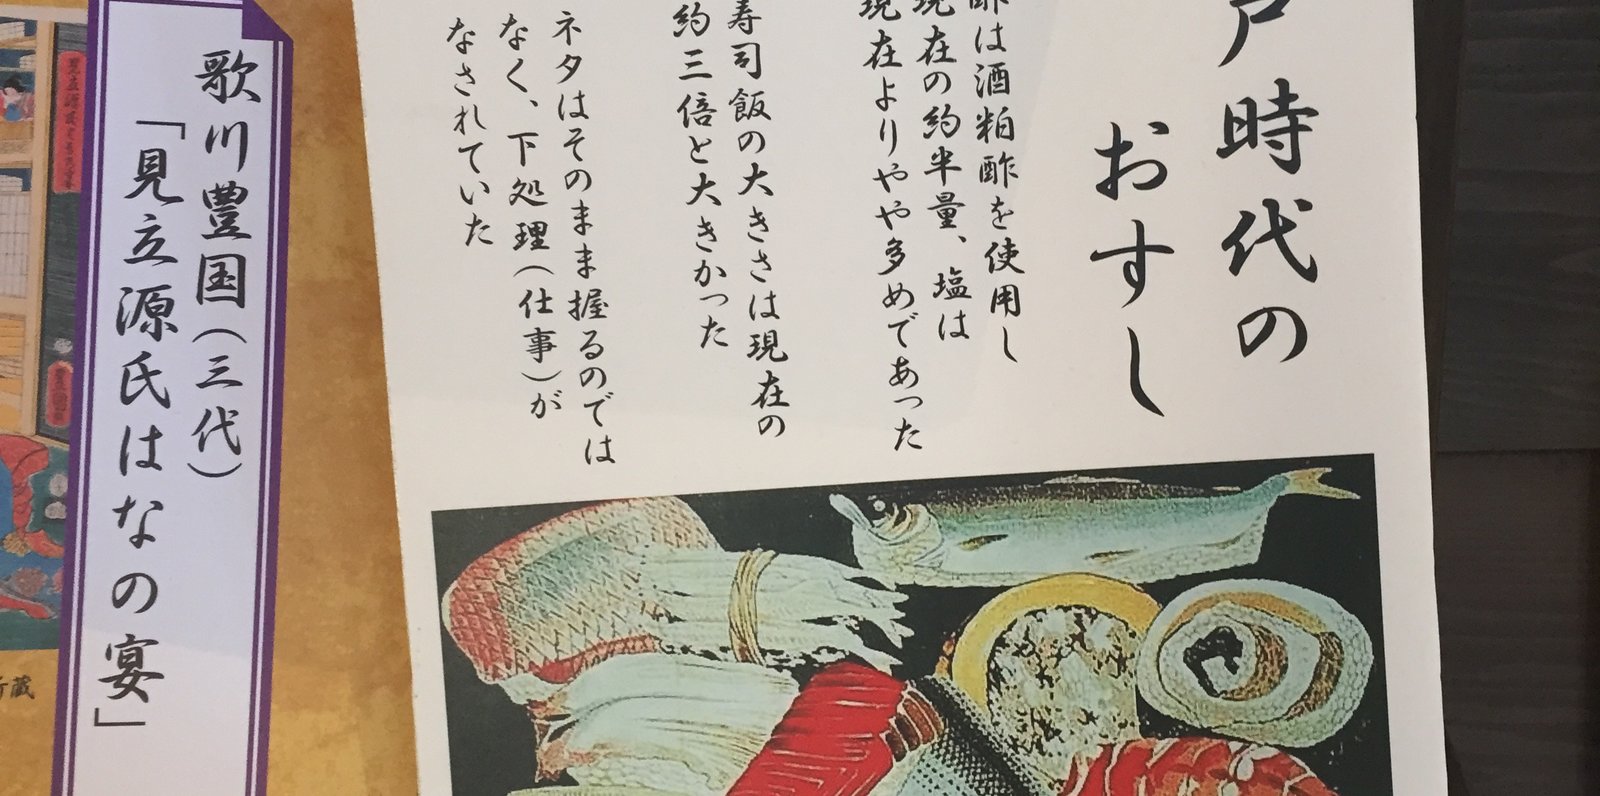 戸時代の
おすし
酢は酒粕酢を使用し
現在の約半量、塩は
現在よりやや多めであった
寿司飯の大きさは現在の
約三倍と大きかった
ネタはそのまま握るのでは
なく、下処理（仕事）が
なされていた
歌川豊国（三代）
「見立源氏はなの宴」
所蔵